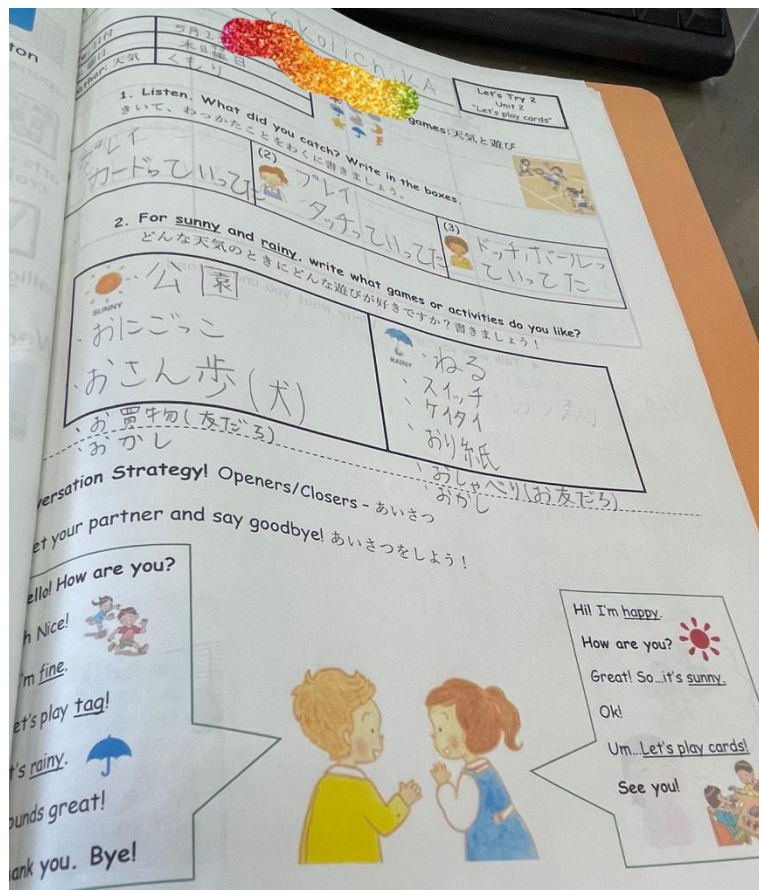 ton
日付
5月2
曜日
木曜日
ather: 天気
くもり
Let's Try 2
Unit 2
"Let's play cards"
games:天気と遊び
1. Listen. What did you catch? Write in the boxes.
きいて、わっかたことをわくに書きましょう。
プレイ
カードっていってた
(2)
プレイ
タッチっていってた
(3)
ドッチボールっ
ていってた
2. For sunny and rainy, write what games or activities do you like?
どんな天気のときにどんな遊びが好きですか？書きましょう！
SUNNY
公園
・おにごっこ
・おさん歩(犬)
・お買物(友だち)
・おかし
RAINY
・ねる
・スイッチ
・ケイタイ
・おり紙
・おしゃべり(お友だち)
・おかし
versation Strategy! Openers/Closers - あいさつ
et your partner and say goodbye! あいさつをしよう！
ello! How are you?
h Nice!
I'm fine.
et's play tag!
t's rainy.
ounds great!
ank you. Bye!
Hi! I'm happy.
How are you?
Great! So...it's sunny.
Ok!
Um...Let's play cards!
See you!